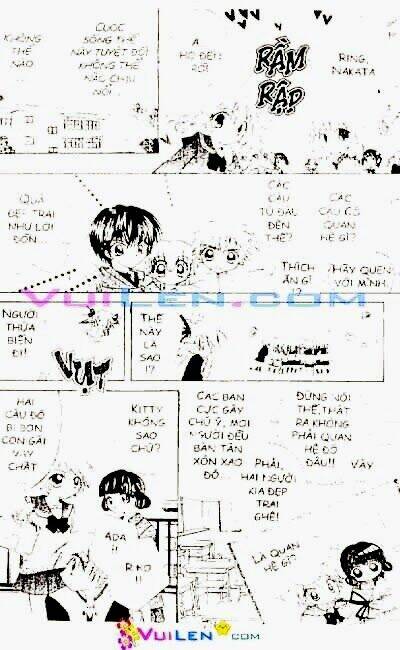 KHÔNG
THỂ
NÀO
CUỘC
SỐNG THẾ
NÀY TUYỆT ĐỐI
KHÔNG THỂ
NÀO CHỊU
NỔI
A
HỌ ĐẾN
RỒI
RẦM
RẬP
RING,
NAKATA
QUẢ
ĐẸP TRAI
NHƯ LỜI
ĐỒN...
CÁC
CẬU
TỪ ĐÂU
ĐẾN
THẾ?
CÁC
CẬU CÓ
QUAN
HỆ GÌ?
THÍCH
ĂN GÌ
?
HÃY QUEN
VỚI MÌNH
VUILEN.COM
NGƯỜI
THỪA
BIẾN
ĐI!
VỤT
THẾ
NÀY
LÀ
SAO
!?
HAI
CẬU ĐÓ
BỊ BỌN
CON GÁI
VÂY
CHẶT
KITTY
KHÔNG
SAO
CHỨ?
ADA
!!
RIKO
!!
CÁC BẠN
CỰC GÂY
CHÚ Ý, MỌI
NGƯỜI ĐỀU
BÀN TÁN
XÔN XAO
ĐÓ
ĐỪNG NÓI
THẾ, THẬT
RA KHÔNG
PHẢI QUAN
HỆ ĐÓ
ĐÂU!!
VẬY
PHẢI,
HAI NGƯỜI
KIA ĐẸP
TRAI
GHÊ!
LÀ QUAN
HỆ GÌ?
VUILEN.COM